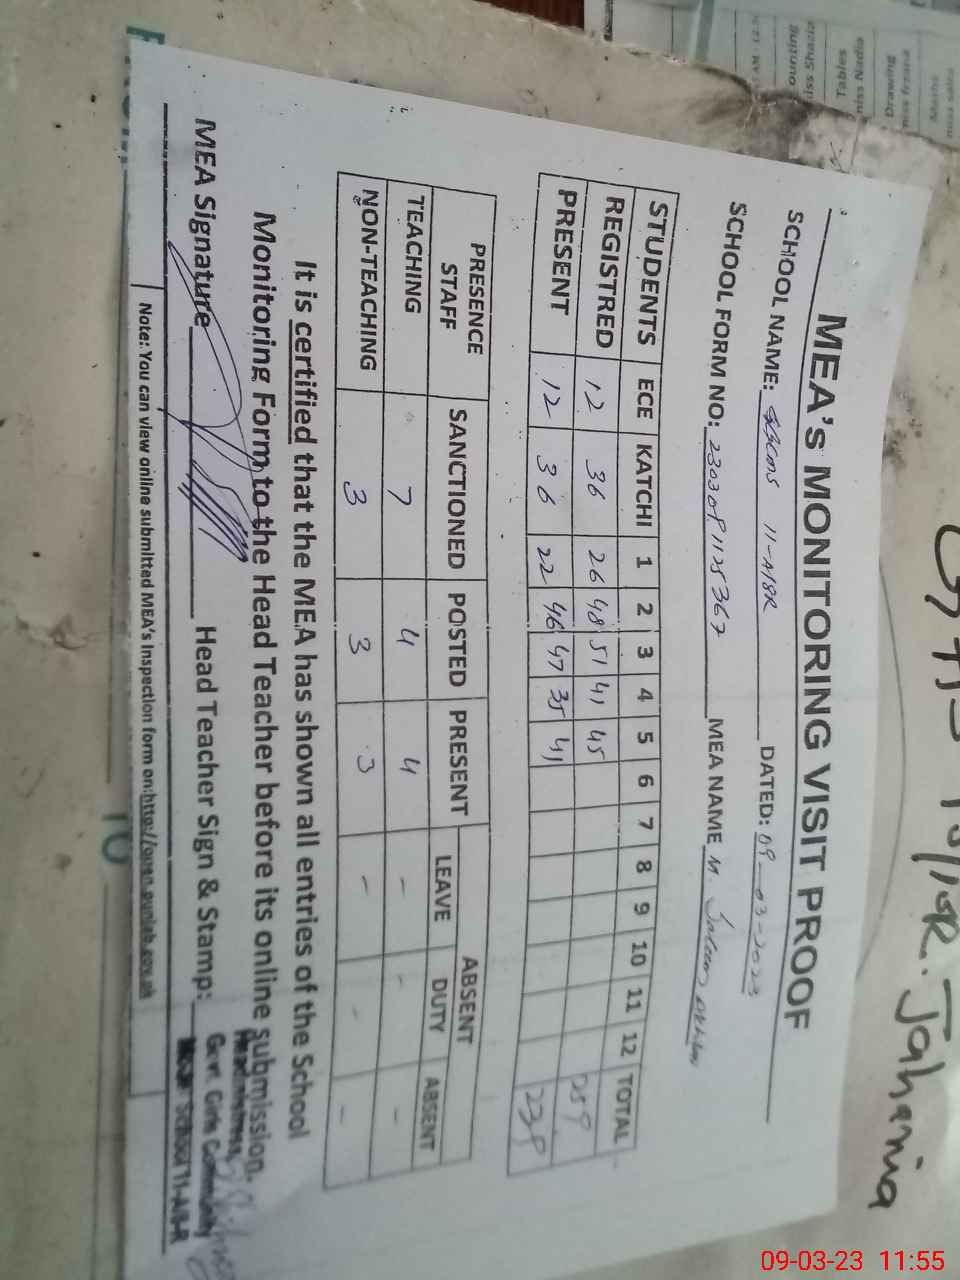 MEA's MONITORING VISIT PROOF
SCHOOL NAME: 11-A/8R DATED: 09-03-2023
SCHOOL FORM NO: MEA NAME M.
STUDENTS ECE KATCHI 1 2 3 4 5 6 7 8 9 10 11 12 TOTAL
REGISTRED 12 36 26 48 51 41 45 259
PRESENT 12 36 22 46 47 35 41 239
PRESENCE STAFF SANCTIONED POSTED PRESENT ABSENT
LEAVE DUTY ABSENT
TEACHING 7 4 4 - - -
NON-TEACHING 3 3 3 - - -
It is certified that the MEA has shown all entries of the School
Monitoring Form to the Head Teacher before its online submission.
MEA Signature Head Teacher Sign & Stamp:
Headmistress,
Govt. Girls Community
School 11-A/8-R
Note: You can view online submitted MEA's Inspection form on:http://open.punjab.gov.pk
Jahania
09-03-23 11:55